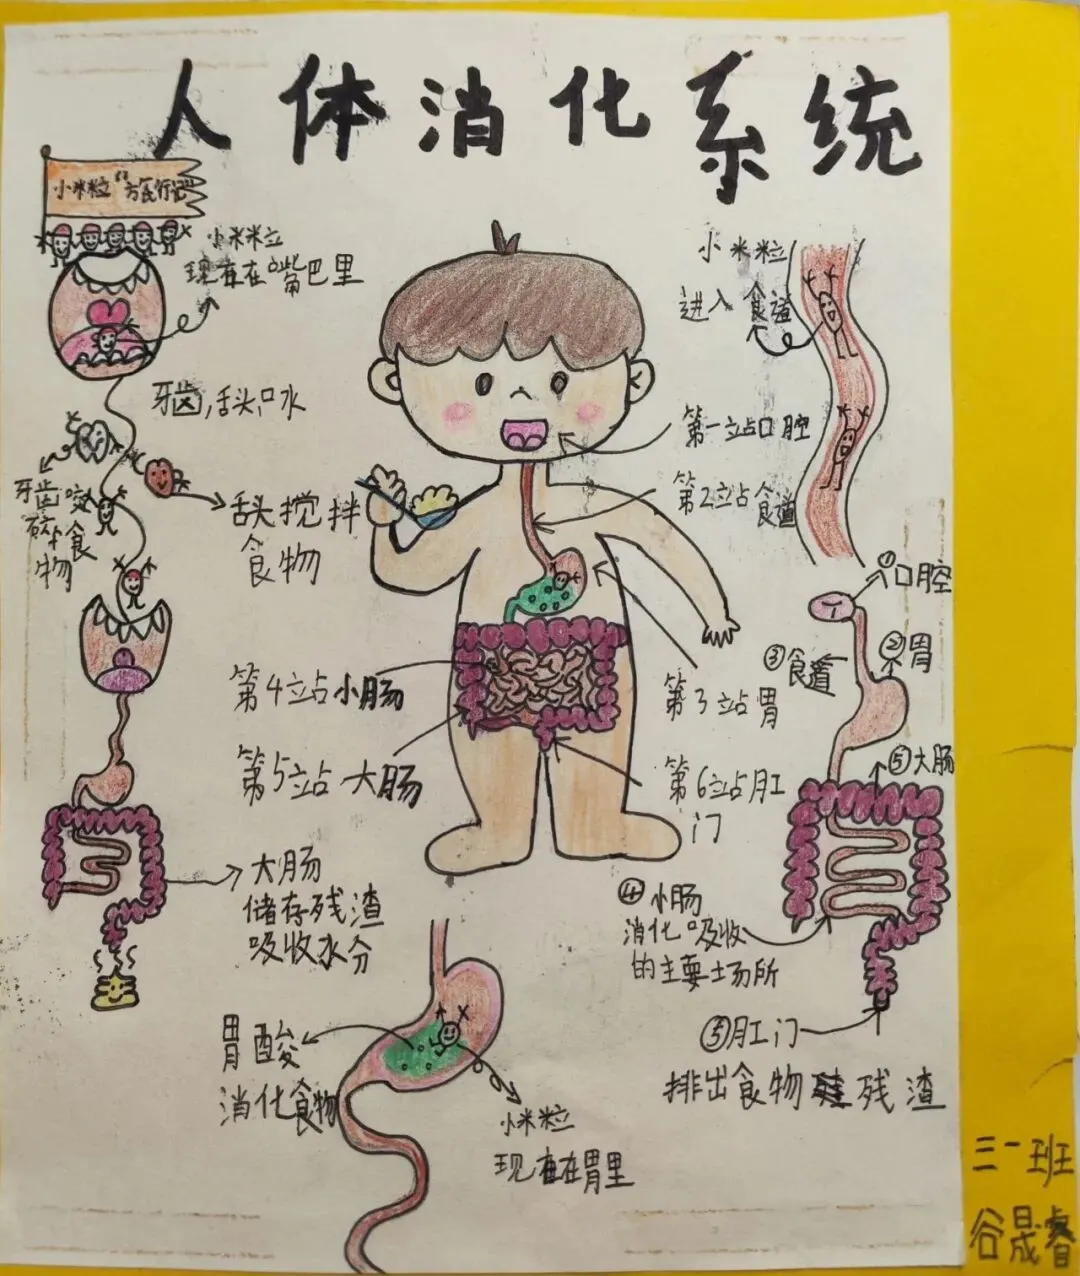 人体消化系统
小米粒“旅行记”
小米米立
现在在嘴巴里
牙齿,舌头,口水
牙齿咬
碎食
物
舌头搅拌
食物
小米粒
进入食道
第一站口腔
第2站食道
第3站胃
第4站小肠
第5站大肠
第6站肛
门
①口腔
②胃
③食道
⑤大肠
④小肠
消化吸收
的主要场所
⑤肛门
排出食物残渣
大肠
储存残渣
吸收水分
胃酸
消化食物
小米粒
现在在胃里
三一班
谷晟睿